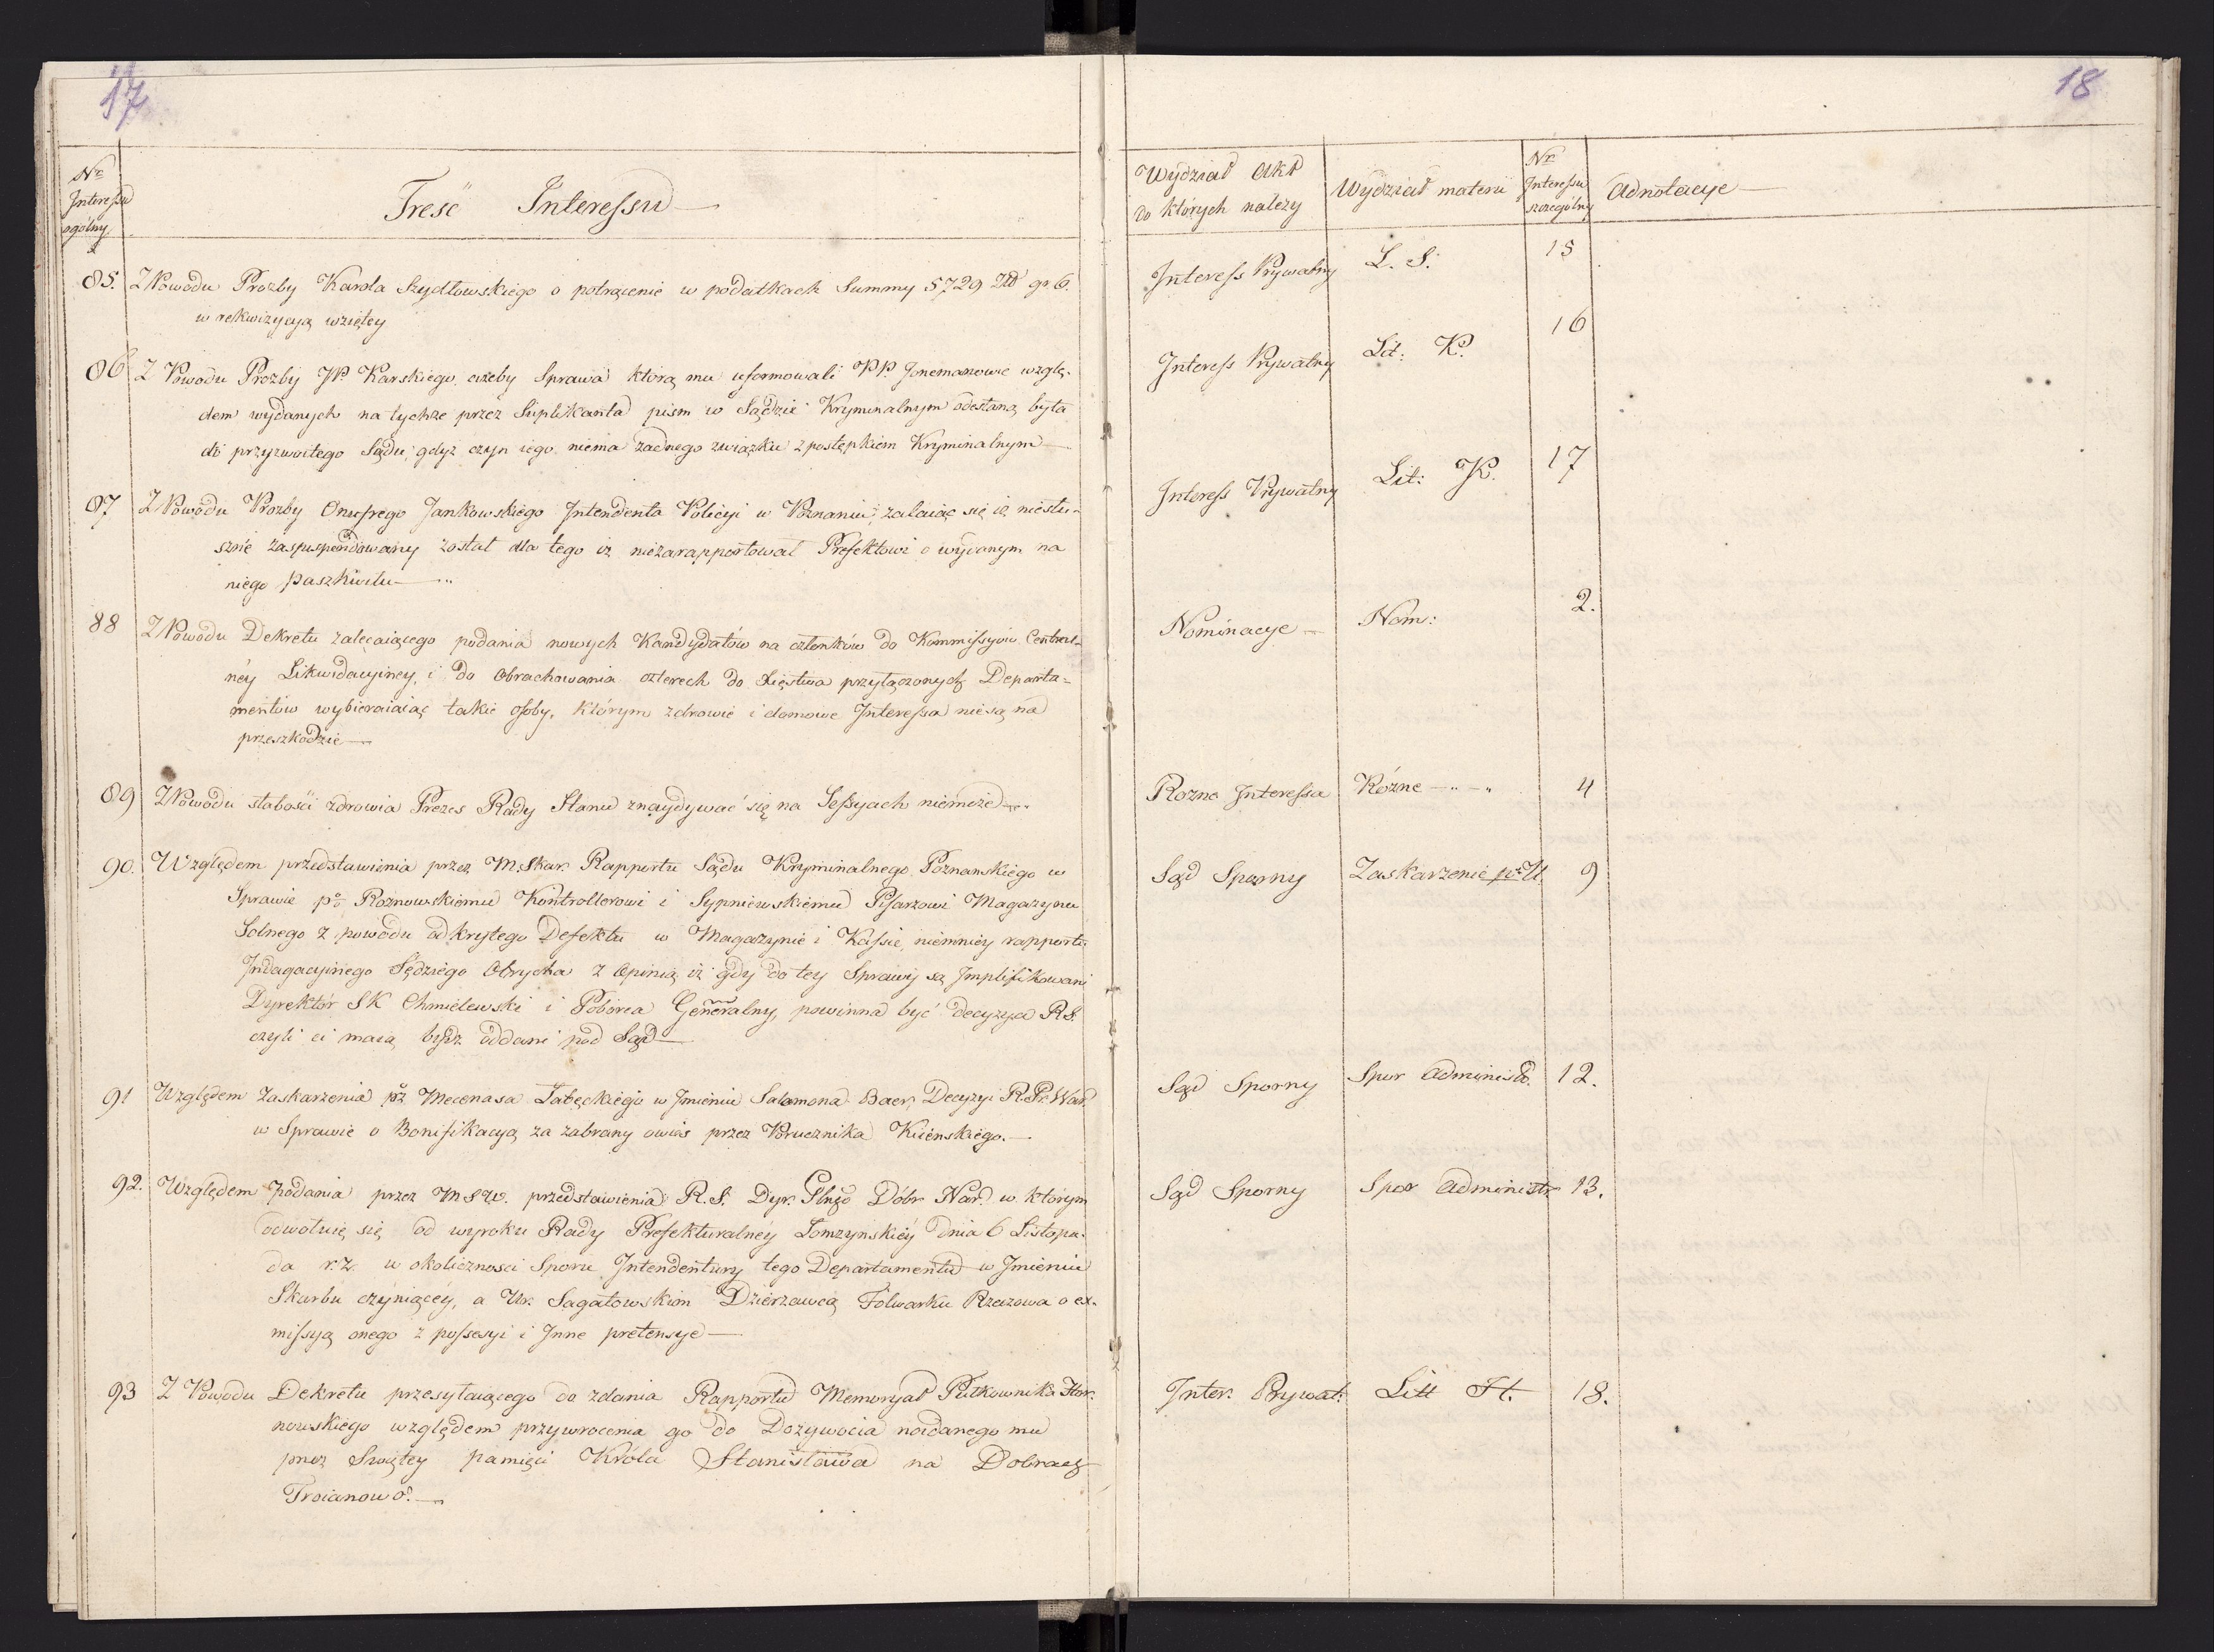 17
Nro
Interessu
ogólny
Treść Interessu
85. Z Powodu Prozby Karola Szydłowskiego o potrącenie w podatkach Summy 5729 Złł gr. 6.
w rekwizycyą wziętey
86 Z Powodu Prozby JP. Karskiego, ażeby Sprawa którą mu uformowali PP Jonemanowie wzglę-
dem wydanych na tychże przez Suplikanta pism w Sądzie Kryminalnym odesłaną była
do przyzwoitego Sądu, gdyż czyn iego niema żadnego związku z postępkiem Kryminalnym
87 Z Powodu Prozby Onufrego Jankowskiego Intendenta Policyi w Poznaniu, żalaiąc się iż niesłu-
sznie zasuspendowany został dla tego iż niezarapportował Prefektowi o wydanym na
niego paszkwilu
88 Z Powodu Dekretu zalecaiącego podania nowych Kandydatów na członków do Kommissyów Central-
néy Likwidacyiney, i do Obrachowania czterech do Xięstwa przyłączonych Departa-
mentów wybieraiąc takie osoby, którym zdrowie i domowe Interessa niesą na
przeszkodzie
89 Z Powodu słabości zdrowia Prezes Rady Stanu znaydywać się na Sessyach niemoże
90. Względem przedstawienia przez M. Skar. Rapportu Sądu Kryminalnego Poznańskiego w
Sprawie pko Roznowskiemu Kontrollerowi i Sypniewskiemu Pisarzowi Magazynu
Solnego z powodu odkrytego Defektu w Magazynie i Kassie, niemniey rapportu
Indagacyinego Sędziego Obrycha z Opinią iż gdy do tey Sprawy są Implikowani
Dyrektór SK Chmielewski i Poborca Generalny, powinna być decyzya R.S.
czyli ci maią bydź oddani pod Sąd
91 Względem Zaskarzenia prz Mecenasa Łabęckiego w Imieniu Salamona Baer, Decyzyi R. Pr. War.
w Sprawie o Bonifikacyą za zabrany owies przez Porucznika Kiienskiego.
92. Względem podania przez M S W. przedstawienia R. S. Dyr. Dóbr Nar. w którym
odwołuie się od wyroku Rady Prefekturalnéy Łomzynskiéy dnia 6 Listopa-
da r.z. w okoliczności Sporu Intendentury tego Departamentu w Imieniu
Skarbu czyniącéy, a Ur. Sagatowskim Dzierzawcą Folwarku Rzazowa o ex-
missyą onego z possesyi i Inne pretensye
93 Z Powodu Dekretu przesyłaiącego do zdania Rapportu Memoryał Pułkownika Hor-
nowskiego względem przywrocenia go do Dozywocia nadanego mu
przez Świętey pamięci Króla Stanisława na Dobrach
Troianowo.
18
Wydział Akt
do których należy
Wydział materii
Nro
Interessu
szczególny
Adnotacye
Interess Prywatny L. S. 15
Interess Prywatny Lit: K. 16
Interess Prywatny Lit: K. 17
Nominacye Nom: 2.
Rozne Interessa Rózne 4
Sąd Sporny Zaskarzenie pr U. 9
Sąd Sporny Spor Administr. 12.
Sąd Sporny Spor Administr. 13.
Inter. Prywat. Litt H. 18.